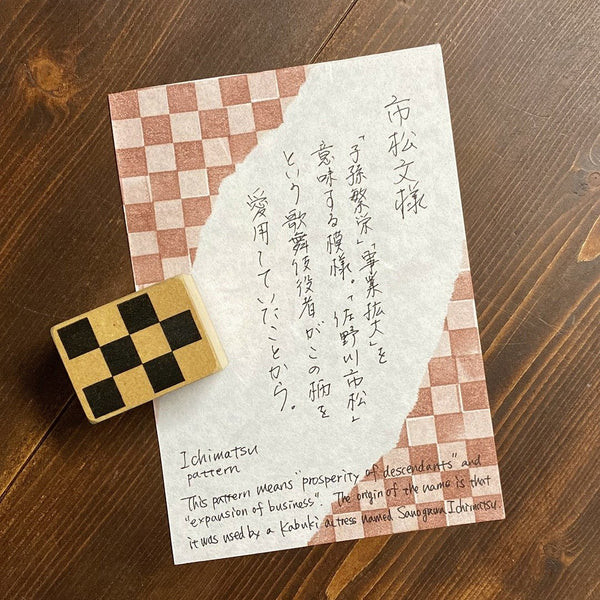 市松文様
「子孫繁栄」「事業拡大」を
意味する模様。「佐野川市松」
という歌舞伎役者がこの柄を
愛用していたことから。
Ichimatsu
pattern
This pattern means "prosperity of descendants" and
"expansion of business". The origin of the name is that
it was used by a Kabuki actress named Sanogawa Ichimatsu.